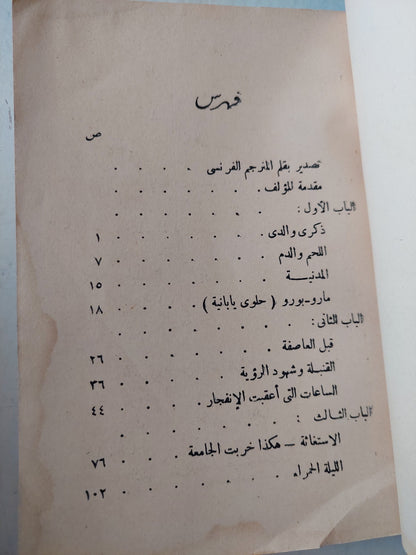 فهرس
ص
تصدير بقلم المترجم الفرنسى . . . .
مقدمة للمؤلف . . . . . .
الباب الأول : . . . . . .
ذكرى والدى . . . . . . ١
اللحم والدم . . . . . . ٧
المدنيـة . . . . . . ١٥
مارو-بورو ( حلوى يابانية ) . . . ١٨
الباب الثانى : . . . . . .
قبل العاصفة . . . . . . ٢٦
القنبلة وشهود الرؤية . . . . ٣٦
الساعات التى أعقبت الإنفجار . . . ٤٤
الباب الثالث : . . . . . .
الاستغاثة – هكذا خربت الجامعة . . . ٧٦
الليلة الحمراء . . . . . . ١٠٢